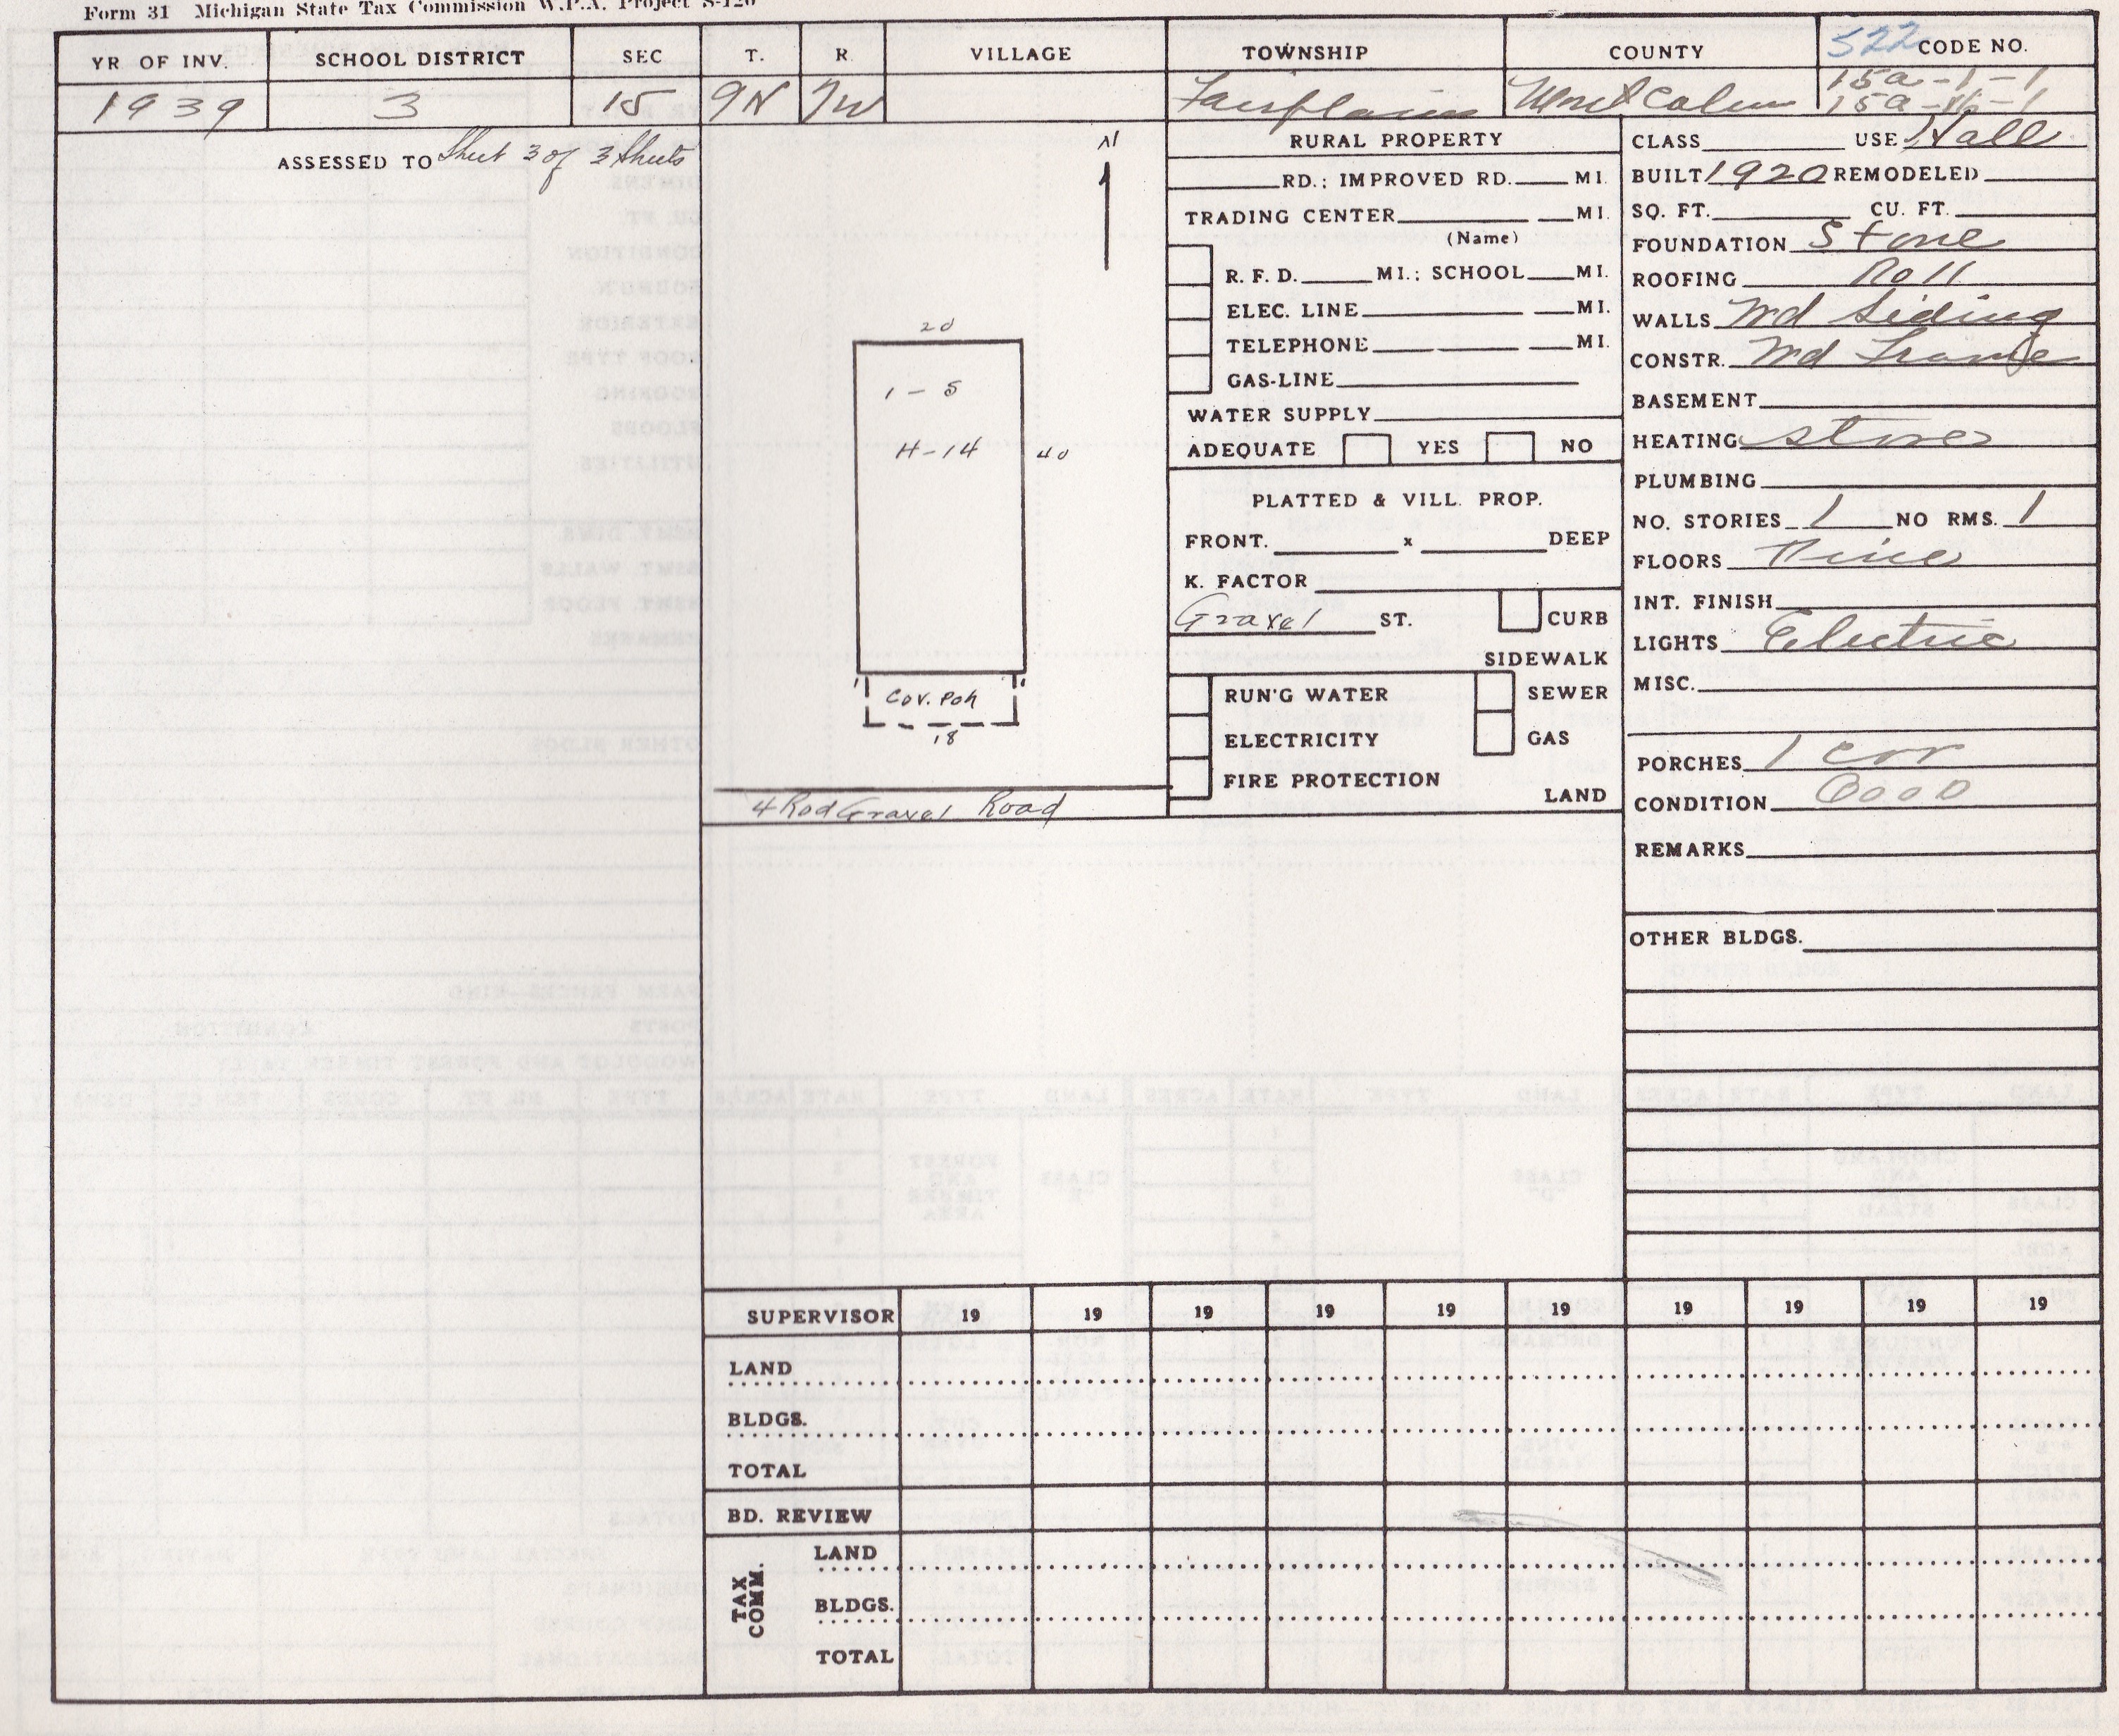 Form 31 Michigan State Tax Commission W.P.A. Project S-120
YR OF INV. SCHOOL DISTRICT SEC T. R VILLAGE TOWNSHIP COUNTY 522 CODE NO.
1939 3 15 9N 7W Fairplains Montcalm 15a-1-1
15a-16-1
ASSESSED TO Sheet 3 of 3 Sheets
N
20
1 - S
H-14
40
Cov. Poh
18
4 Rod Gravel Road
RURAL PROPERTY
RD.; IMPROVED RD. MI.
TRADING CENTER MI.
(Name)
R. F. D. MI.; SCHOOL MI.
ELEC. LINE MI.
TELEPHONE MI.
GAS-LINE
WATER SUPPLY
ADEQUATE YES NO
PLATTED & VILL. PROP.
FRONT. x DEEP
K. FACTOR
Gravel ST. CURB
SIDEWALK
RUN'G WATER SEWER
ELECTRICITY GAS
FIRE PROTECTION
LAND
CLASS USE Hall
BUILT 1920 REMODELED
SQ. FT. CU. FT.
FOUNDATION Stone
ROOFING Roll
WALLS Wd Siding
CONSTR. Wd Frame
BASEMENT
HEATING Stove
PLUMBING
NO. STORIES 1 NO RMS. 1
FLOORS Pine
INT. FINISH
LIGHTS Electric
MISC.
PORCHES 1 cov
CONDITION Good
REMARKS
OTHER BLDGS.
SUPERVISOR 19 19 19 19 19 19 19 19 19 19
LAND
BLDGS.
TOTAL
BD. REVIEW
TAX COMM.
LAND
BLDGS.
TOTAL